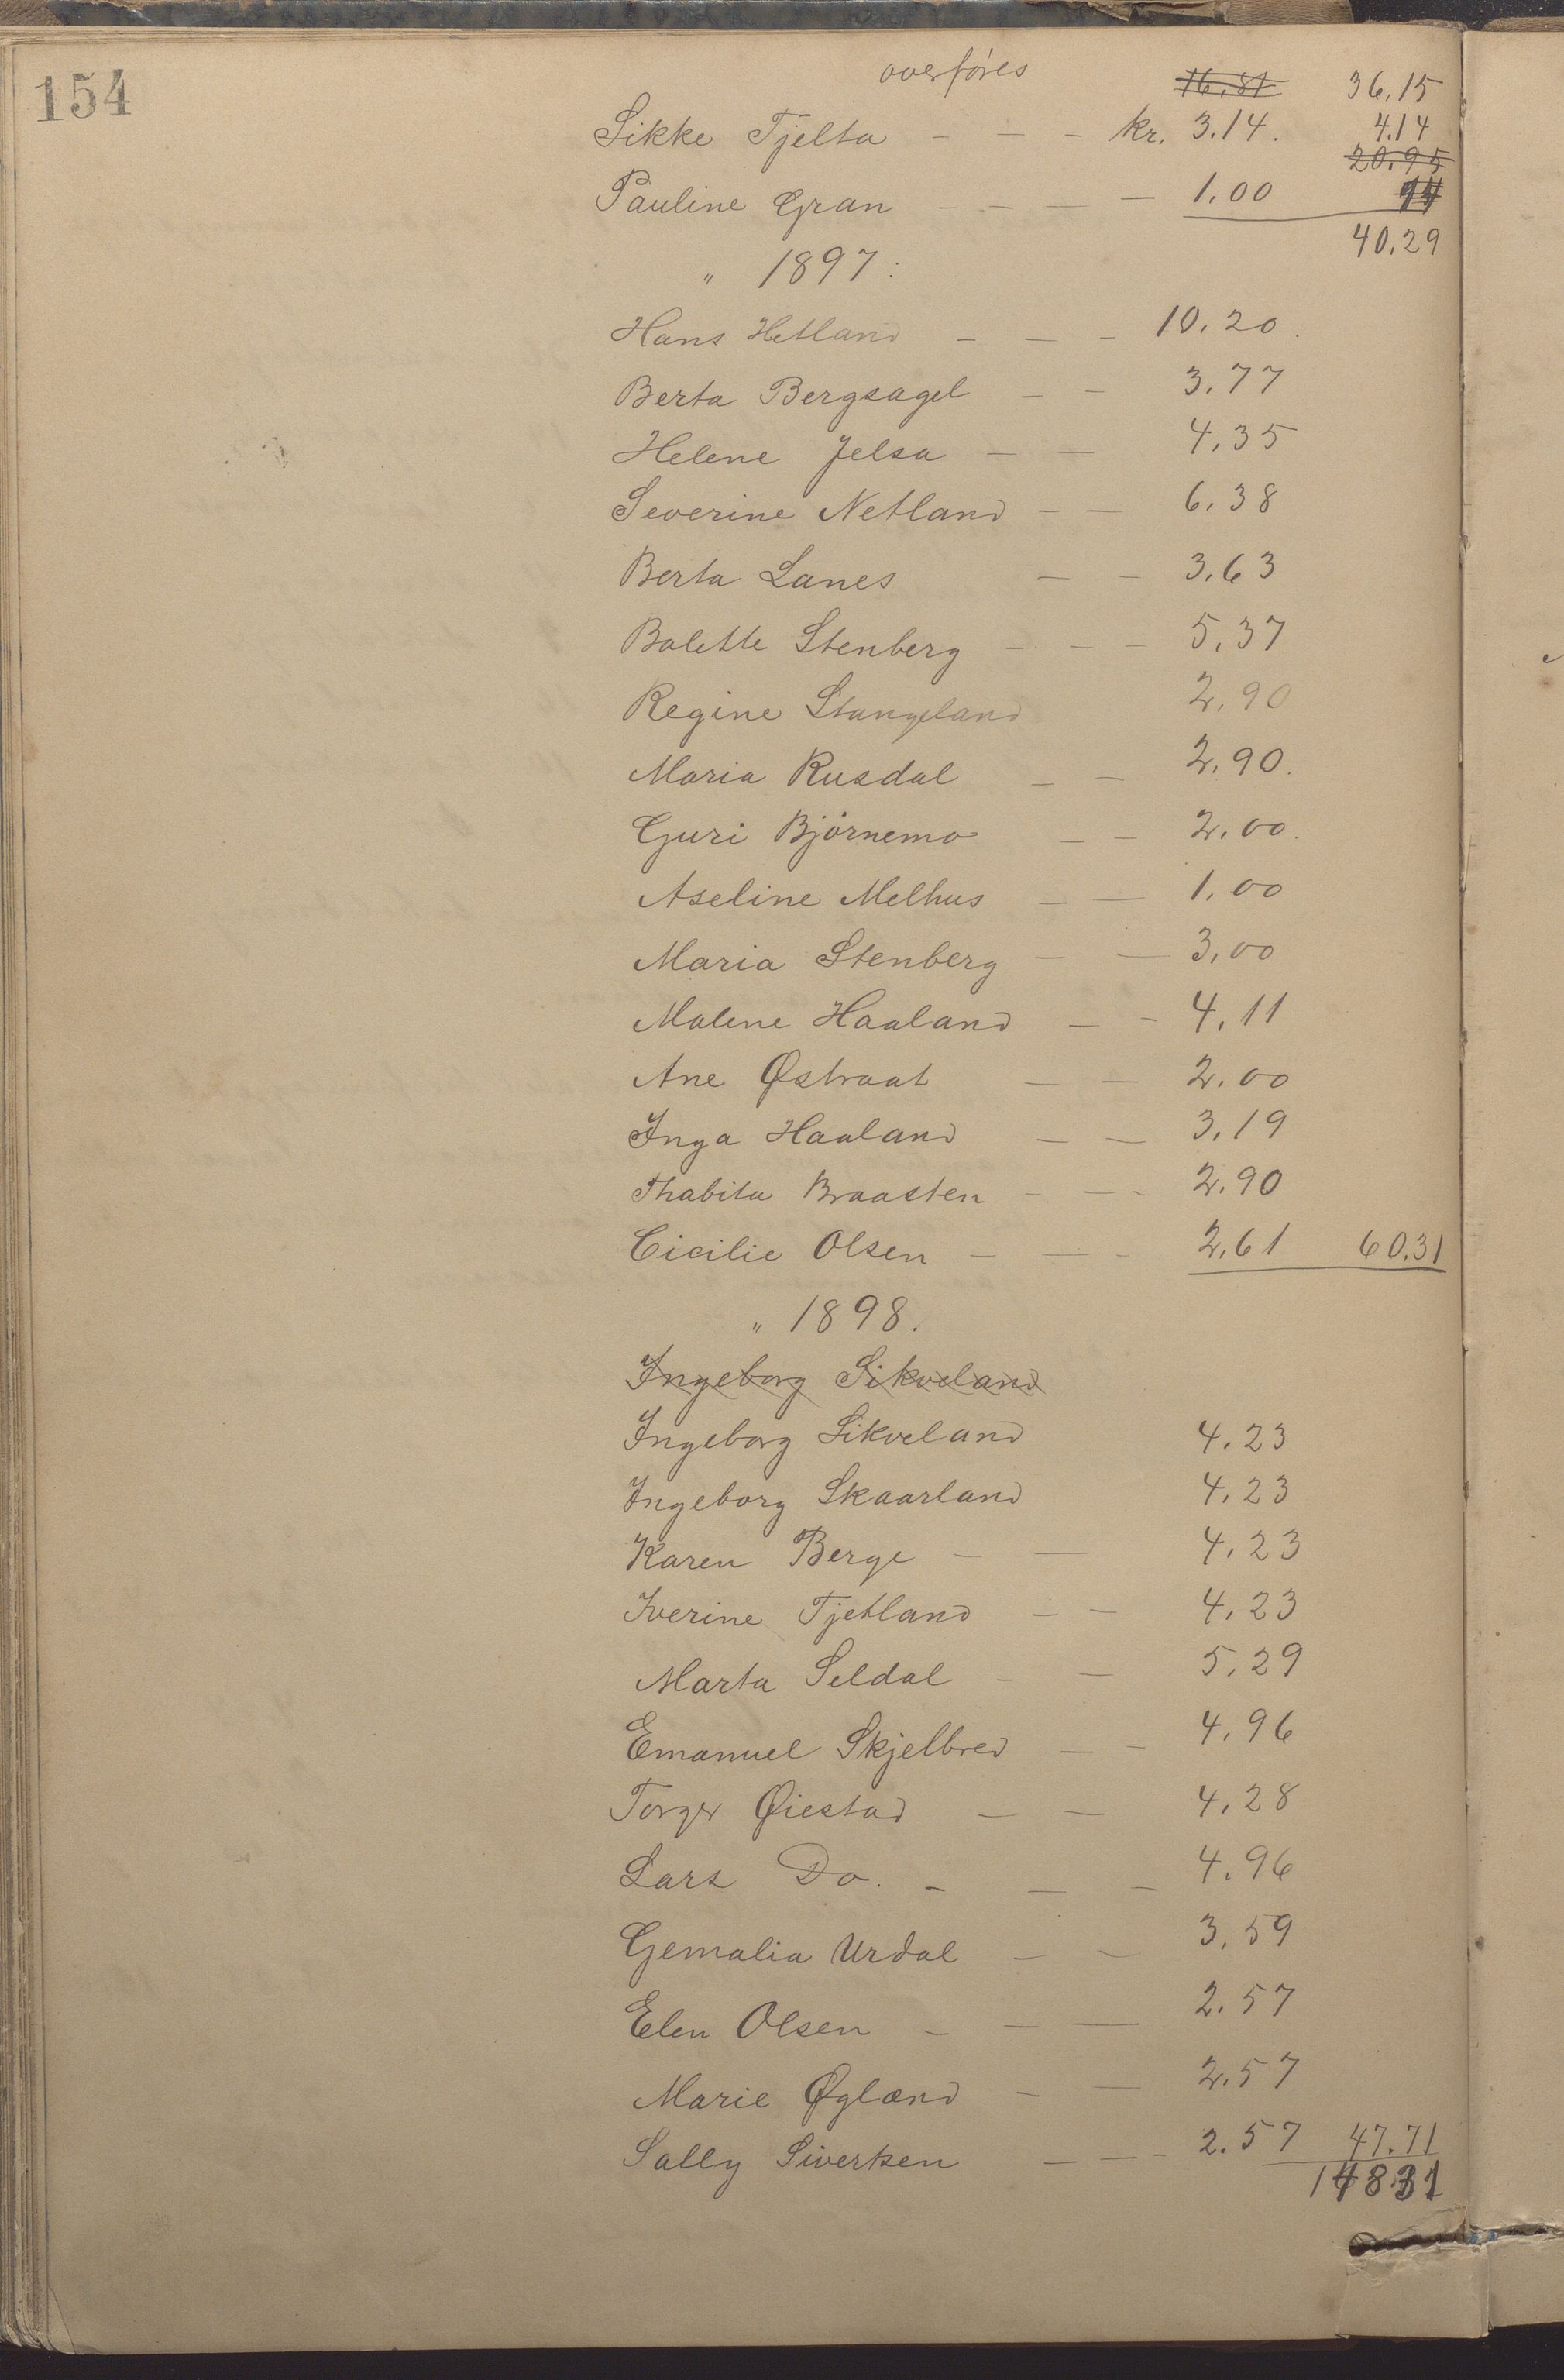 154
overføres 16,81 36,15
Sikke Tjelta - - - kr. 3.14. 4.14
20.95
Pauline Gran - - - - 1,00
40.29
" 1897:
Hans Hetland - - - 10.20.
Berta Bergsagel - - 3.77
Helene Jelsa - - 4,35
Severine Netland - - 6.38
Berta Lanes - - 3.63
Bolette Stenberg - - - 5.37
Regine Stangeland 2,90
Maria Rusdal - - 2.90.
Guri Bjørnemo - - 2.00.
Aseline Melhus - - 1,00
Maria Stenberg - - 3,00
Malene Haaland - - 4.11
Ane Østraat - - 2.00
Inga Haaland - - 3,19
Thabita Braasten - - - 2.90
Cicilie Olsen - - - 2,61 60.31
" 1898.
Ingeborg Sikveland
Ingeborg Sikveland 4.23
Ingeborg Skaarland 4.23
Karen Berge - - 4.23
Iverine Tjetland - - 4.23
Marta Seldal - - 5,29
Emanuel Skjelbred - - 4.96
Torger Øiestad - - 4.28
Lars Do. - - - 4.96
Gemalia Urdal - - 3,59
Elen Olsen - - - 2.57
Marie Øgland - - 2.57
Sally Siversen - - - 2.57 47.71
148 31